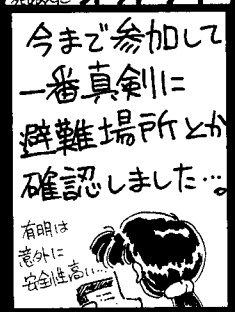 今まで参加して
一番真剣に
避難場所とか
確認しました…。
有明は
意外に
安全性高い…